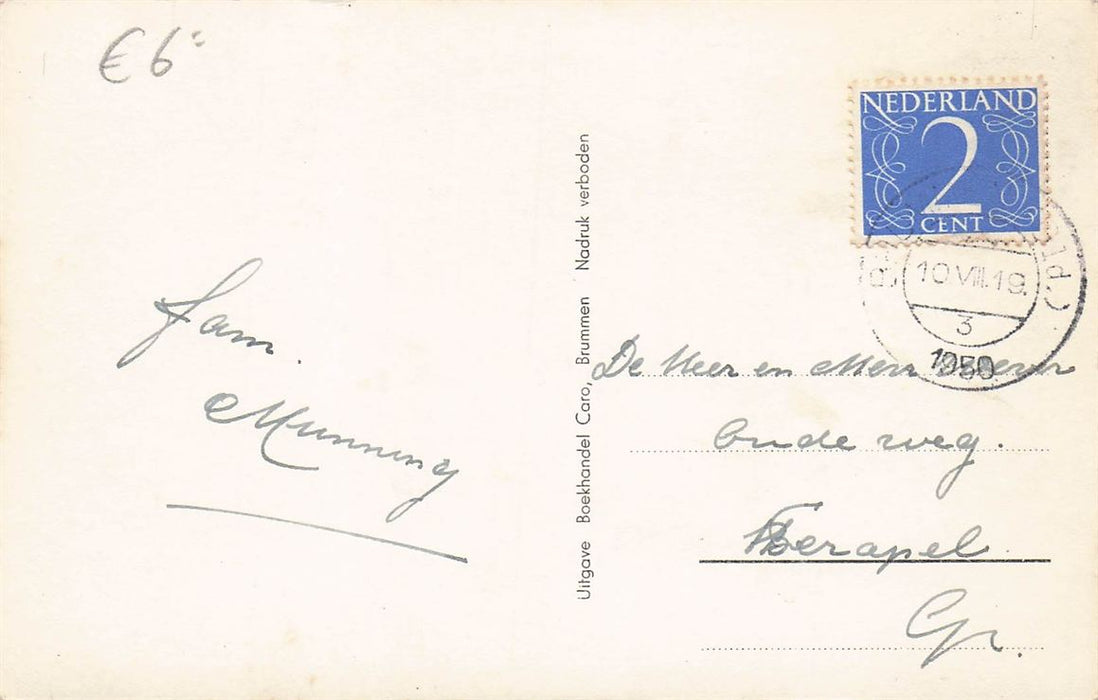 € 6=
NEDERLAND
2
CENT
10 VIII.19.
3
1950
Fam.
Munning
Uitgave Boekhandel Caro, Brummen Nadruk verboden
De Heer en Mevr
Oude weg.
Terapel
Gr.